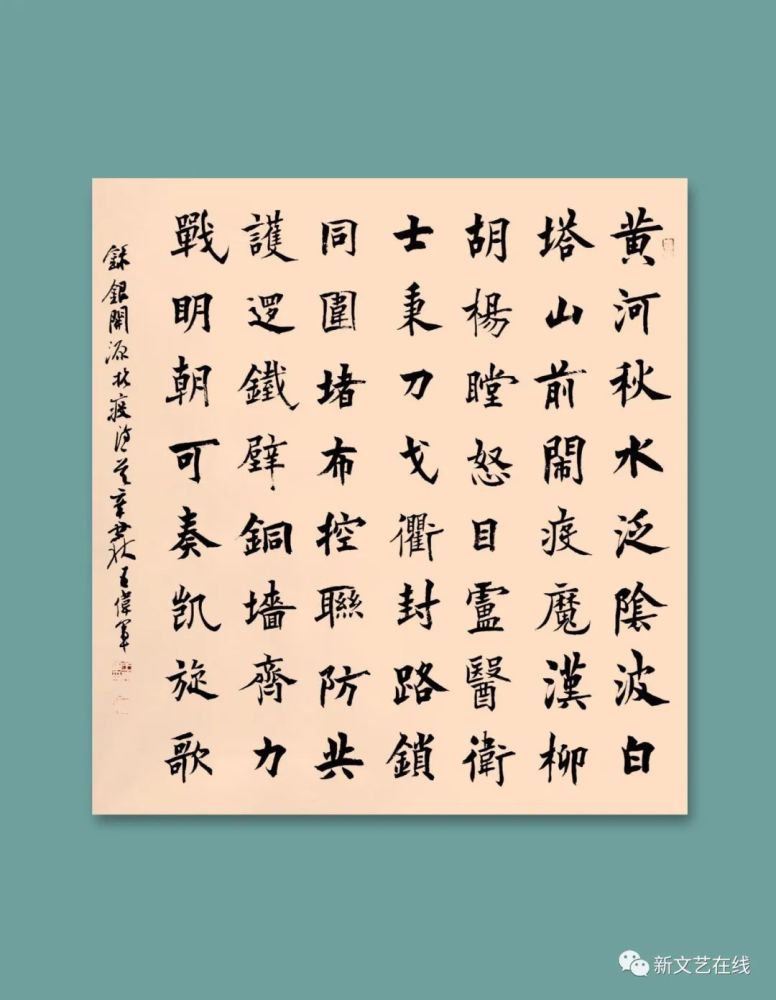 黄河秋水泛陰波白
塔山前鬧疫魔漢柳
胡楊瞠怒目盧醫衛
士秉刀戈衢封路鎖
同圍堵布控聯防共
護逻鐵壁銅墻齊力
戰明朝可奏凱旋歌
錄銀開源抗疫詩一首辛丑秋王偉軍
新文艺在线